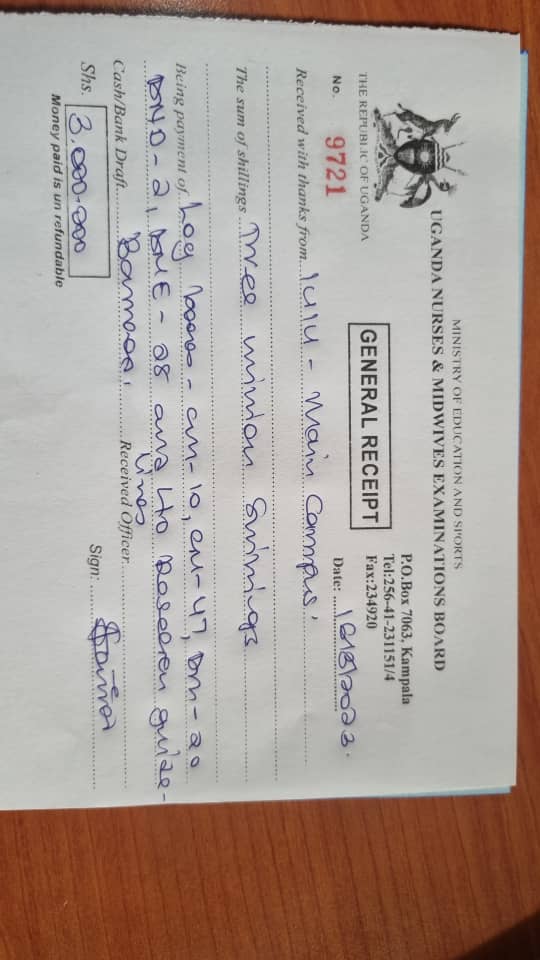 MINISTRY OF EDUCATION AND SPORTS
UGANDA NURSES & MIDWIVES EXAMINATIONS BOARD
P.O.Box 7063, Kampala
Tel:256-41-231151/4
Fax:234920
THE REPUBLIC OF UGANDA
GENERAL RECEIPT
No. 9721
Date:
Received with thanks from IUIU - Main Campus
The sum of shillings Three million Shillings
Being payment of Log books - cm-10, cn-47, Dm-20
DND-2, DNE-28 and 40 Research guide-
lines
Cash/Bank Draft Received Officer
Shs. 3,000,000 Sign:
Money paid is un refundable